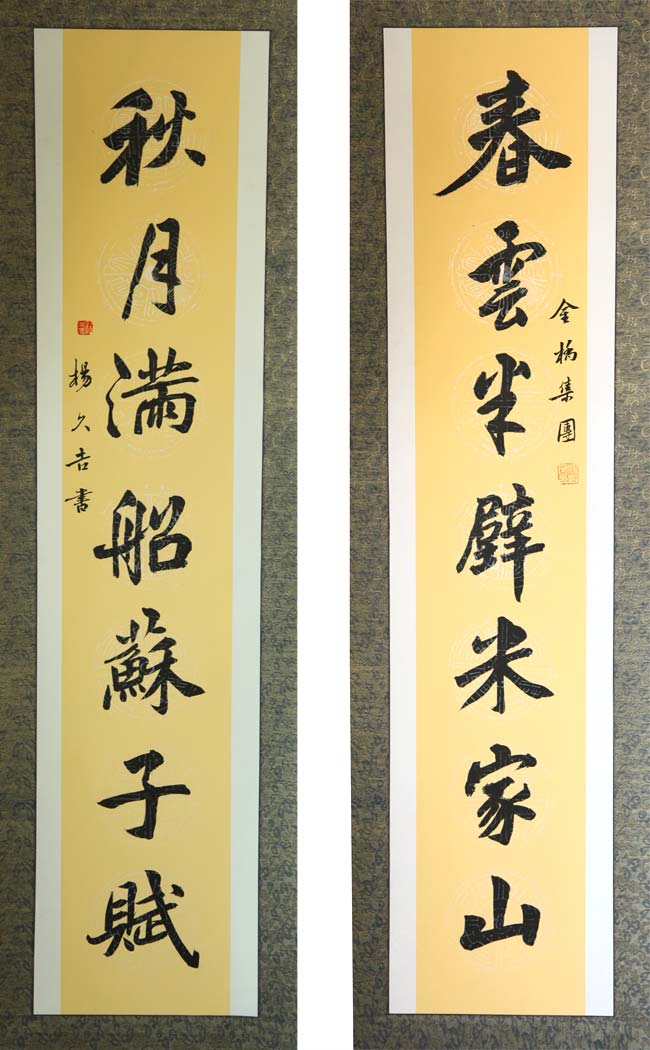 春雲半壁米家山
金橋集團
秋月滿船蘇子賦
楊久吉書